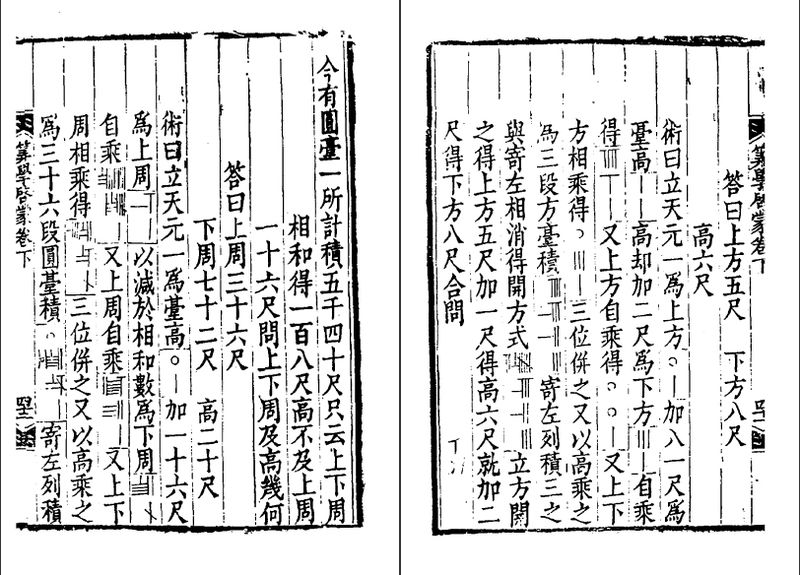 答曰上方五尺 下方八尺
高六尺
術曰立天元一爲上方。|加八一尺爲
臺高||高却加二尺爲下方|||自乘
得||||又上方自乘得。。|又上下
方相乘得。|||三位併之又以高乘之
爲三段方臺積寄左列積三之
與寄左相消得開方式立方開
之得上方五尺加一尺得高六尺就加二
尺得下方八尺合問
筭學啓蒙卷下
今有圓臺一所計積五千四十尺只云上下周
相和得一百八尺高不及上周
一十六尺問上下周及高幾何
答曰上周三十六尺
下周七十二尺 高二十尺
術曰立天元一爲臺高。|加一十六尺
爲上周以減於相和數爲下周
自乘又上周自乘又上下
周相乘得三位併之又以高乘之
爲三十六段圓臺積。寄左列積
筭學啓蒙卷下